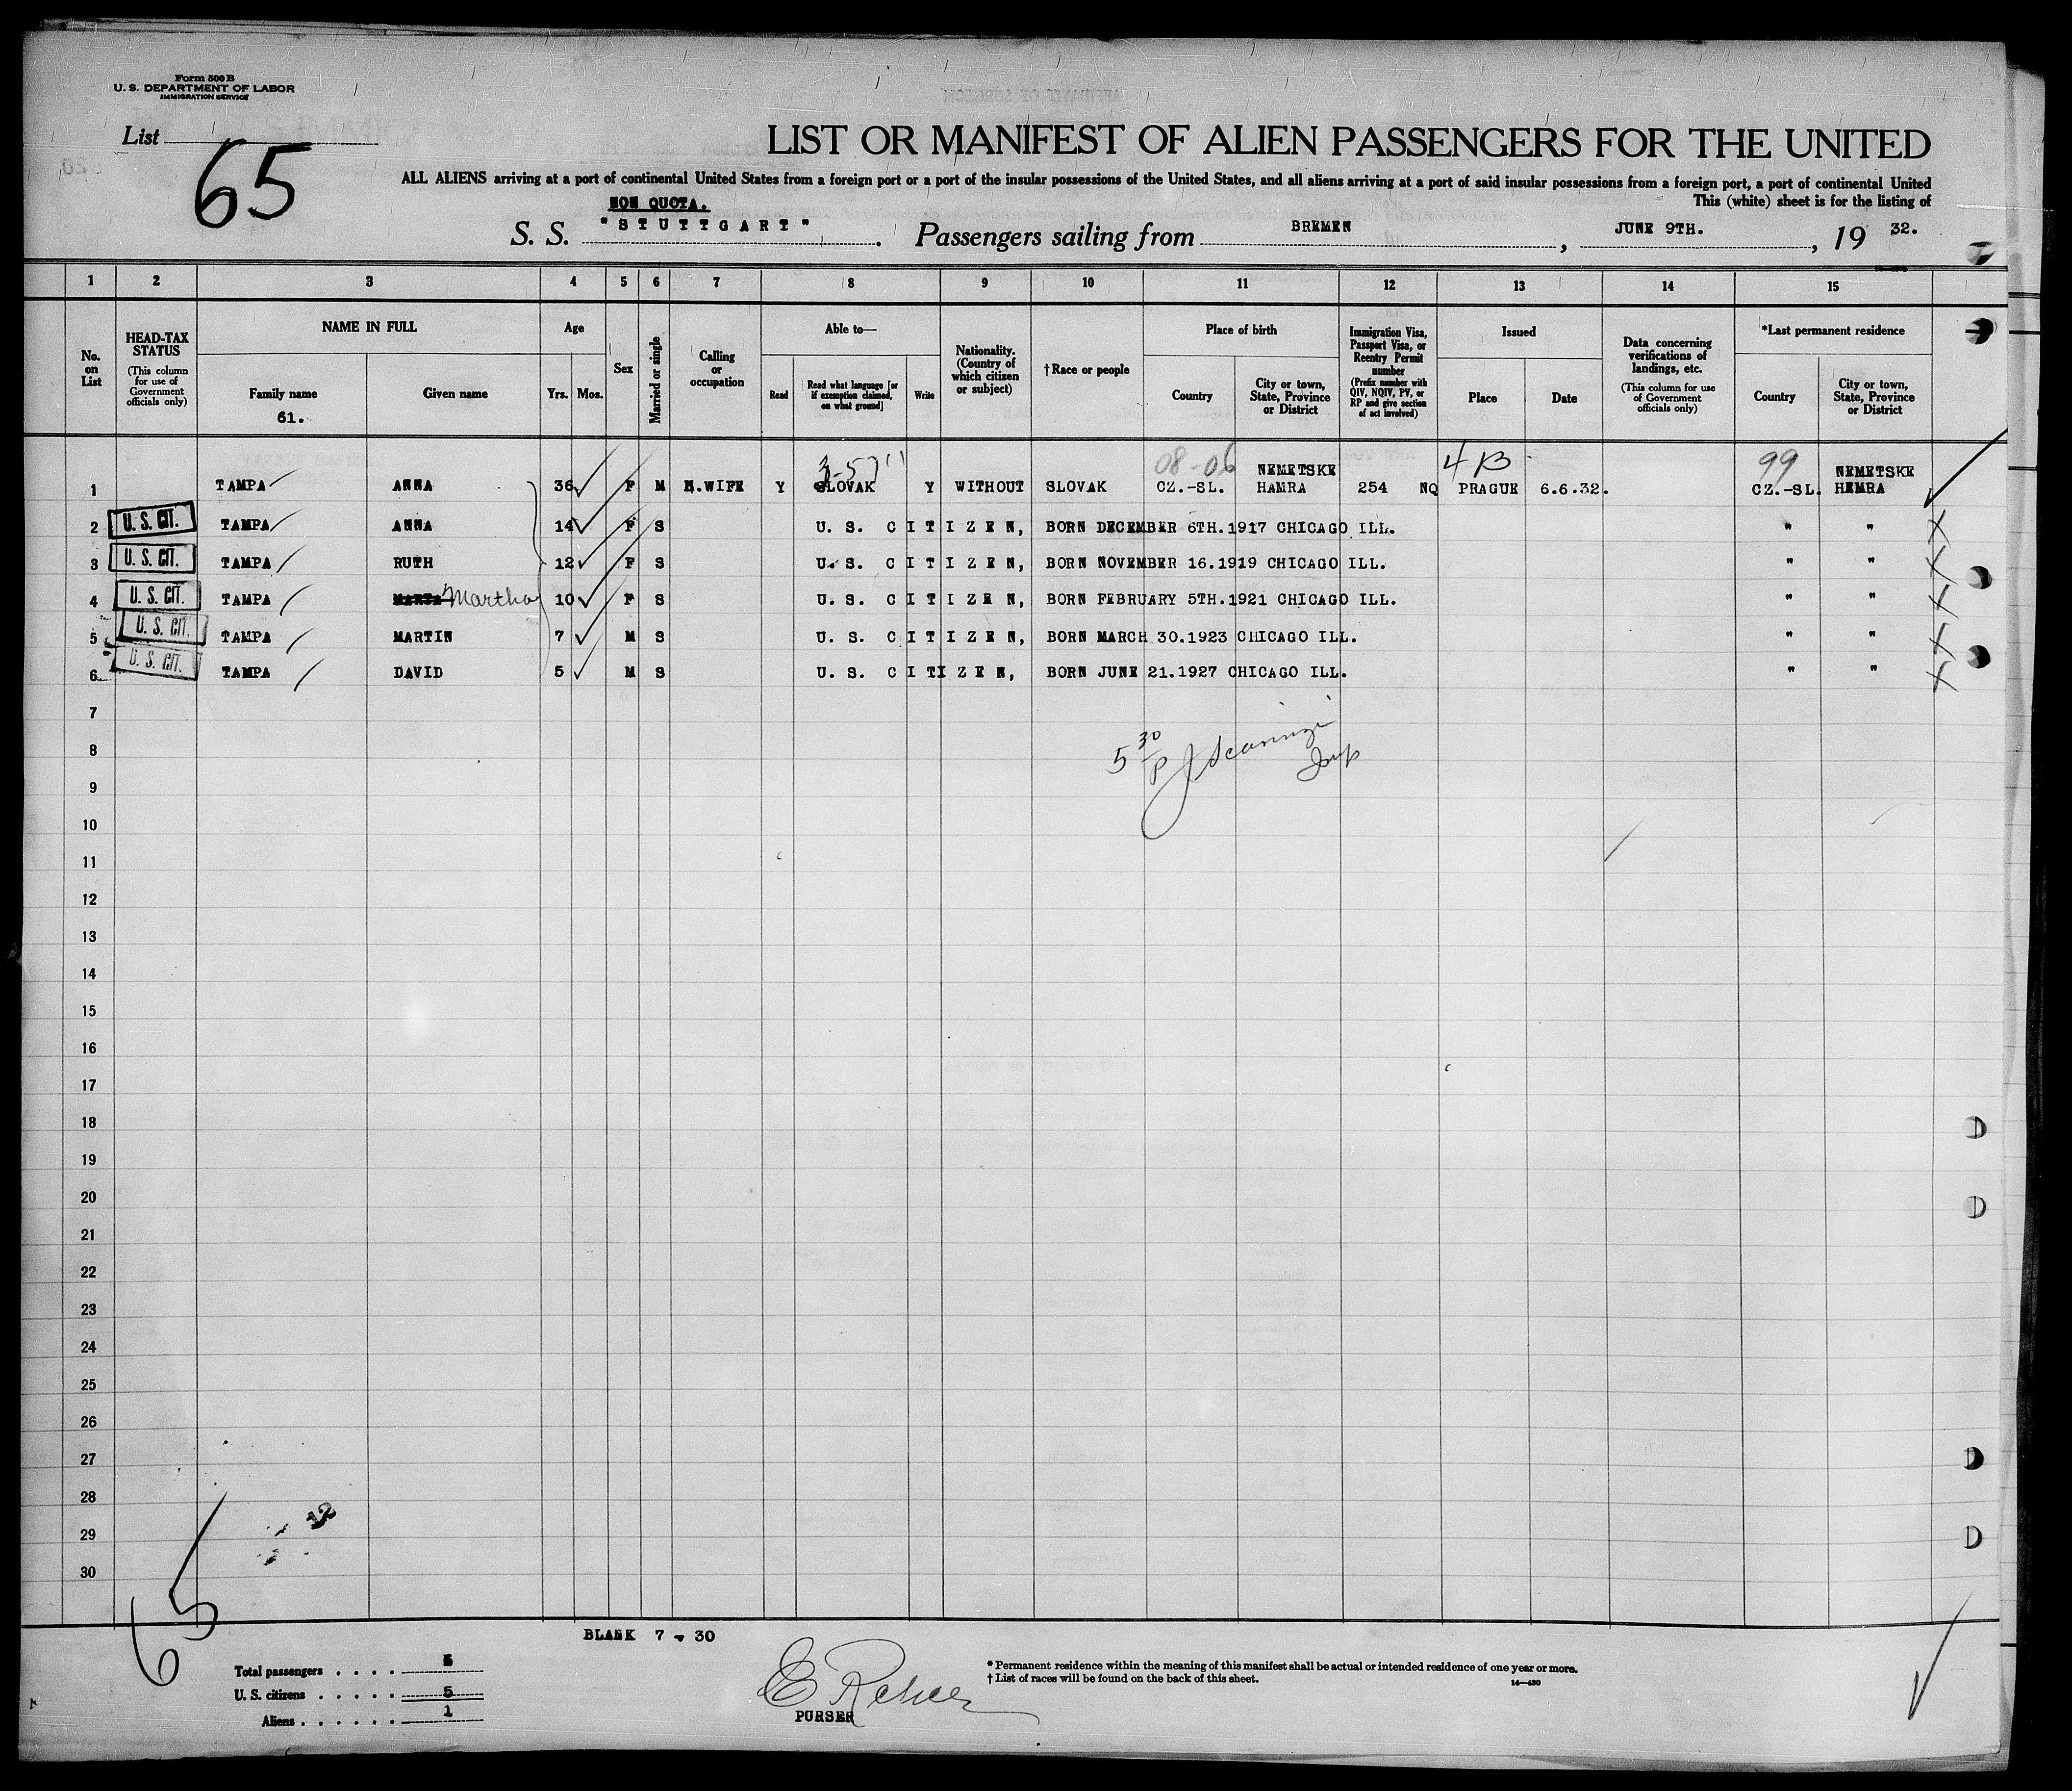 Form 500 B
U. S. DEPARTMENT OF LABOR
IMMIGRATION SERVICE
List 65
LIST OR MANIFEST OF ALIEN PASSENGERS FOR THE UNITED
ALL ALIENS arriving at a port of continental United States from a foreign port or a port of the insular possessions of the United States, and all aliens arriving at a port of said insular possessions from a foreign port, a port of continental United
This (white) sheet is for the listing of
NON QUOTA.
S. S. "STUTTGART". Passengers sailing from BREMEN, JUNE 9TH., 19 32.
1 2 3 4 5 6 7 8 9 10 11 12 13 14 15
No. on List
HEAD-TAX STATUS
(This column for use of Government officials only)
NAME IN FULL
Family name
61.
Given name
Age
Yrs. Mos.
Sex
Married or single
Calling or occupation
Able to—
Read
Read what language [or if exemption claimed, on what ground]
Write
Nationality. (Country of which citizen or subject)
† Race or people
Place of birth
Country
City or town, State, Province or District
Immigration Visa, Passport Visa, or Reentry Permit number
(Prefix number with QIV, NQIV, PV, or RP and give section of act involved)
Issued
Place
Date
Data concerning verifications of landings, etc.
(This column for use of Government officials only)
*Last permanent residence
Country
City or town, State, Province or District
08-06 4 B 99
1 TAMPA ANNA 36 F M H.WIFE Y SLOVAK Y WITHOUT SLOVAK CZ.-SL. NEMETSKE HAMRA 254 NQ PRAGUE 6.6.32. CZ.-SL. NEMETSKE HAMRA
2 U. S. CIT. TAMPA ANNA 14 F S U. S. CITIZEN, BORN DECEMBER 6TH.1917 CHICAGO ILL. " "
3 U. S. CIT. TAMPA RUTH 12 F S U. S. CITIZEN, BORN NOVEMBER 16.1919 CHICAGO ILL. " "
4 U. S. CIT. TAMPA MARTA Martha 10 F S U. S. CITIZEN, BORN FEBRUARY 5TH.1921 CHICAGO ILL. " "
5 U. S. CIT. TAMPA MARTIN 7 M S U. S. CITIZEN, BORN MARCH 30.1923 CHICAGO ILL. " "
6 U. S. CIT. TAMPA DAVID 5 M S U. S. CITIZEN, BORN JUNE 21.1927 CHICAGO ILL. " "
7
8 5 30 P Insp
9
10
11
12
13
14
15
16
17
18
19
20
21
22
23
24
25
26
27
28
29
30
65
BLANK 7 - 30
Total passengers . . . .
U. S. citizens . . . . . 5
Aliens . . . . . . 1
PURSER
* Permanent residence within the meaning of this manifest shall be actual or intended residence of one year or more.
† List of races will be found on the back of this sheet.
14—430